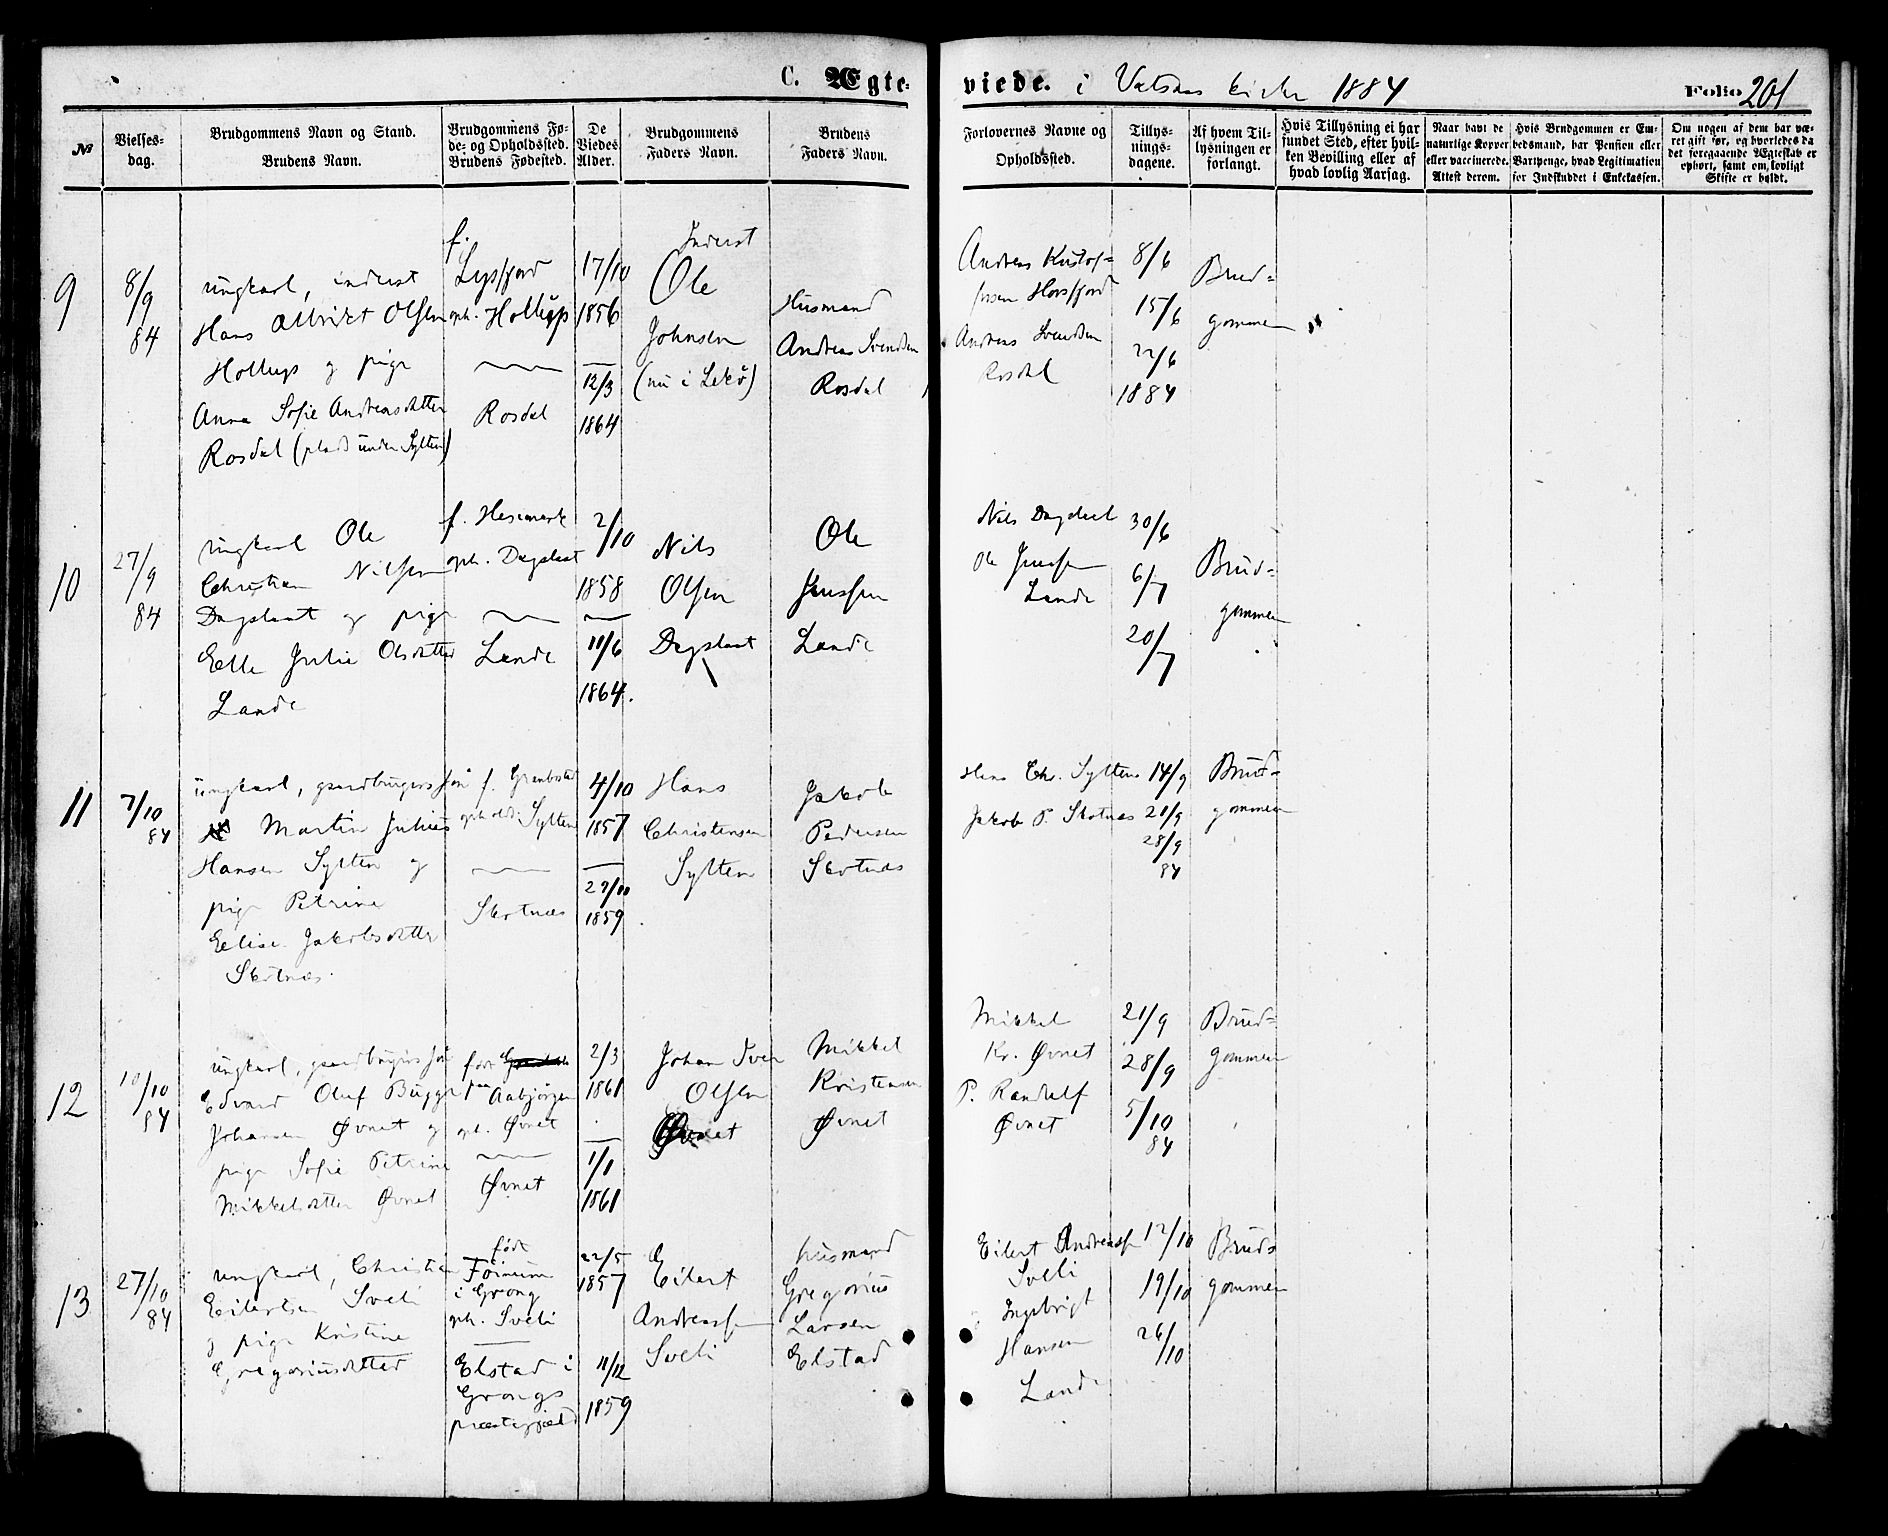 C. Ægte-
viede. i kirke 1884
Folio 201
№
Vielses-
dag.
Brudgommens Navn og Stand.
Brudens Navn.
Brudgommens Fø-
de- og Opholdssted.
Brudens Fødested.
De
Viedes
Alder.
Brudgommens
Faders Navn.
Brudens
Faders Navn.
Forlovernes Navne og
Opholdssted.
Tillys-
nings-
dagene.
Af hvem Til-
lysningen er
forlangt.
Hvis Tillysning ei har
fundet Sted, efter hvil-
ken Bevilling eller af
hvad lovlig Aarsag.
Naar havt de
naturlige Kopper
eller vaccinerede.
Attest derom.
Hvis Brudgommen er Em-
bedsmand, har Pension eller
Vartpenge, hvad Legitimation
for Indskuddet i Enkekassen.
Om nogen af dem har væ-
ret gift før, og hvorledes da
det foregaaende Ægteskab er
ophørt, samt om lovligt
Skifte er holdt.
9
8/9
84
ungkarl, inderst
Hans Olsen
Hollup og pige
Anna Sofie Andreasdatter
Rosdal (plads under Sylten)
f.
Lysfjord
oph. Hollup
Rosdal
17/10
1856
12/3
1864
Inderst
Ole
Johnsen
(nu i Lekø)
Husmand
Andreas Svendsen
Rosdal
Andreas Kristof-
fersen
Andreas Svendsen
Rosdal
8/6
15/6
22/6
1884
Brud-
gommen
10
27/9
84
ungkarl Ole
Christian Nilsen
Dagslaat og pige
Elle Julie Olsdatter
Lande
f.
oph. Dagslaat
Lande
2/10
1858
11/6
1864.
Nils
Olsen
Dagslaat
Ole
Jenssen
Lande
Nils Dagslaat
Ole Jenssen
Lande
30/6
6/7
20/7
Brud-
gommen
11
7/10
84
ungkarl, gaardbrugers søn
Martin Julius
Hansen Sylten og
pige Petrine
Elise Jakobsdatter
Skotnæs.
f.
opholds: Sylten
Skotnæs
4/10
1857
1859
Hans
Christensen
Sylten
Jakob
Pedersen
Skotnæs
Hans Chr. Sylten
Jakob P. Skotnæs
14/9
21/9
28/9
84
Brud-
gommen
12
10/10
84
ungkarl, gaardbrugers søn
Edvard Oluf Bugge
Johansen Øvnet og
pige Sofie Petrine
Mikkelsdatter Øvnet
født
paa Aabjørgen
oph. Øvnet
Øvnet
2/3
1861
1/1
1861
Johan Iver
Olsen
Øvnet
Mikkel
Kristensen
Øvnet
Mikkel
Kr. Øvnet
P. Randulf
Øvnet
21/9
28/9
5/10
84
Brud-
gommen
13
27/10
84
ungkarl, Christian
Eilertsen Sveli
og pige Kristine
Gregoriusdatter
født
i Grong
oph. Sveli
Elstad i
Grongs
præstegjeld
22/5
1857
11/12
1859
Eilert
Andreassen
Sveli
husmand
Gregorius
Larsen
Elstad
Eilert Andreassen
Sveli
Ingebrigt
Hansen
Lande
12/10
19/10
26/10
Brud-
gommen